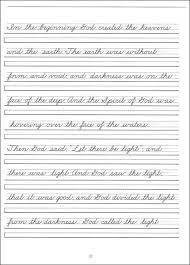 In the beginning God created the heavens
and the earth. The earth was without
form and void; and darkness was on the
face of the deep. And the Spirit of God was
hovering over the face of the waters.
Then God said, "Let there be light"; and
there was light. And God saw the light,
that it was good; and God divided the light
from the darkness. God called the light